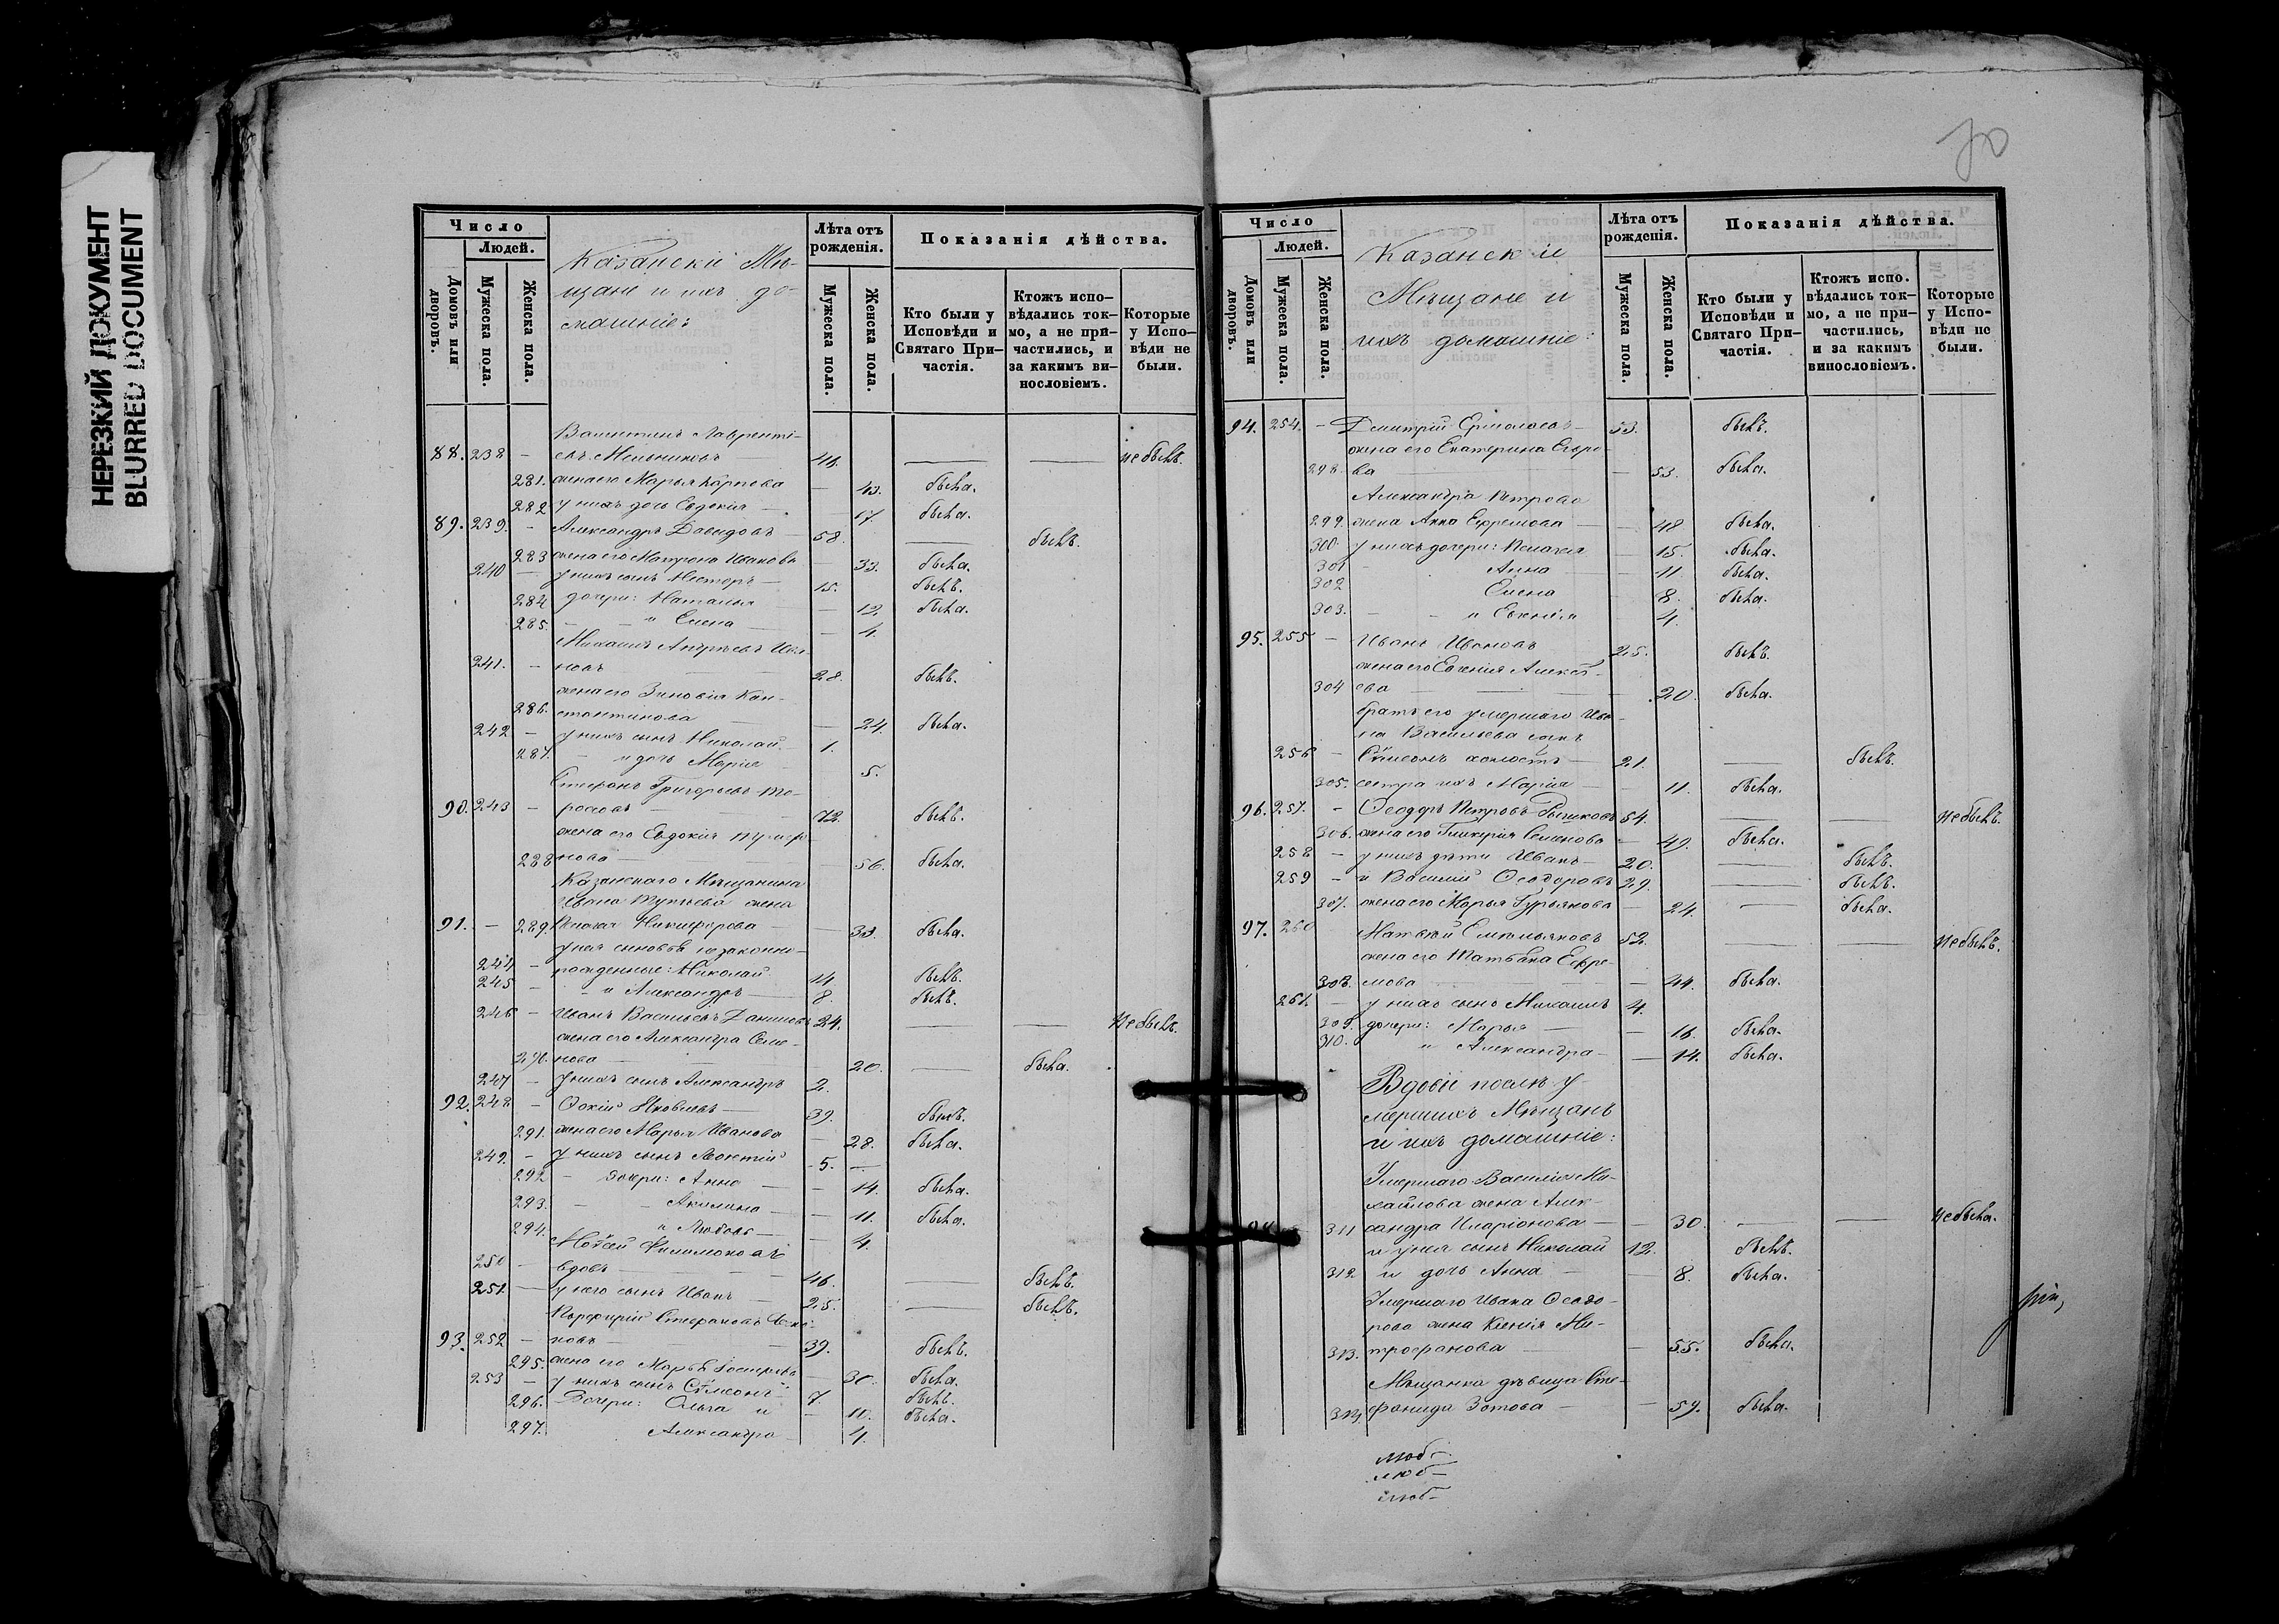 НЕРЕЗКИЙ ДОКУМЕНТ
BLURRED DOCUMENT
Число
Людей.
Домовъ или дворовъ.
Мужеска пола.
Женска пола.
Казанскіе Мѣ-
щане и ихъ до-
машніе:
Лѣта отъ рожденія.
Мужеска пола.
Женска пола.
Показанія дѣйства.
Кто были у Исповѣди и Святаго При-частія.
Ктожъ испо-вѣдались ток-мо, а не при-частились, и за какимъ ви-нословіемъ.
Которые у Испо-вѣди не были.
Валентинъ Лавренті-
88. 238 — евъ Мельниковъ не былъ.
281. жена его Марья Карпова — 43. была.
282 у нихъ дочь Евдокія — 17. была.
89. 239. — Александръ Давидовъ — 58. былъ.
283 жена его Матрона Иванова — 33. была.
240 — у нихъ сынъ Несторъ — 15. былъ.
284 дочери: Наталья — 12. была.
285. — и Елена — 4.
Михаилъ Андреевъ Ива-
241. — новъ 28. былъ.
жена его Зиновія Кон-
286. стантинова — 24. была.
242 — у нихъ сынъ Николай 1.
287. — и дочь Марія 5.
Стефанъ Григорьевъ
90. 243 — 72. былъ.
жена его Евдокія Триф-
288 нова — 56. была.
Казанскаго Мѣщанина
Ивана жена
91. — 289. Пелагія Никифорова — 33. была.
у нея сыновья незаконно-
244 — рожденные: Николай 14 былъ.
245 — и Александръ — 8. былъ.
246 — Иванъ Васильевъ Даниловъ 24. не былъ.
жена его Александра Семе-
нова — 20. была.
247 — у нихъ сынъ Александръ 2.
92. 248 — Яковлевъ — 39. былъ.
291. жена его Марья Иванова — 28. была.
249. — у нихъ сынъ 5. —
292 — дочери: Анна — 14. была.
293. — Акилина — 11. была.
294. и Любовь — 4.
Моѵсей Филимоновъ
250 — вдовъ — 46. былъ.
251. — у него сынъ Иванъ — 25. былъ.
Порфирій Стефановъ
93. 252 — новъ — 39. былъ.
295. жена его Марья — 30. была.
253 — у нихъ сынъ Сѵмеонъ 7. былъ.
296. Дочери: Ольга и — 10. была.
297. Александра 4.
70
Число
Людей.
Домовъ или дворовъ.
Мужеска пола.
Женска пола.
Казанскіе
Мѣщане и
ихъ домашніе:
Лѣта отъ рожденія.
Мужеска пола.
Женска пола.
Показанія дѣйства.
Кто были у Исповѣди и Святаго При-частія.
Ктожъ испо-вѣдались ток-мо, а не при-частились, и за какимъ винословіемъ.
Которые у Испо-вѣди не были.
94. 254. — Дмитрій Ермолаевъ — 53. былъ.
жена его Екатерина Егоро-
298. ва — 53. была.
Александра Петрова
299. жена Анна Ефремова — 48 была.
300. у нихъ дочери: Пелагея — 15. была.
301 Анна — 11. была.
302 Елена — 8. была.
303. — и Евгенія — 4.
95. 255 — Иванъ Ивановъ 25. былъ.
жена его Евгенія Алексѣ-
304 ева — 20. была.
братъ его умершаго Ива-
на Васильева сынъ
256 — Сѵмеонъ холостъ — 21. — былъ.
305. сестра ихъ Марія — 11. была.
96. 257. — Ѳеодоръ Петровъ 54. — не былъ.
306. жена его Гликерія Семенова — 49. была.
258 — у нихъ дѣти Иванъ — 20. — былъ.
259 — и Василій Ѳеодоровъ 29. — былъ.
307. жена его Марья Гурьянова — 24. — была.
97. 260 Матвѣй Емельяновъ 52. — не былъ.
жена его Татьяна Ефре-
308. мова — 44. была.
261. — у нихъ сынъ Михаилъ 4.
309. дочери: Марья — 16. была.
310. и Александра — 14. была.
Вдовіи послѣ у-
мершихъ Мѣщанъ
и ихъ домашніе:
Умершаго Василія Ми-
хайлова жена Алек-
311 сандра Иларіонова — 30. — не была.
и у нея сынъ Николай 12. былъ.
312 и дочь Анна — 8. была.
Умершаго Ивана Ѳеодо-
рова жена Ксенія Ми-
313. трофанова — 55. была.
Мѣщанка дѣвица Сте-
314. фанида Зотова — 59. была.
люб-
люб-
люб-